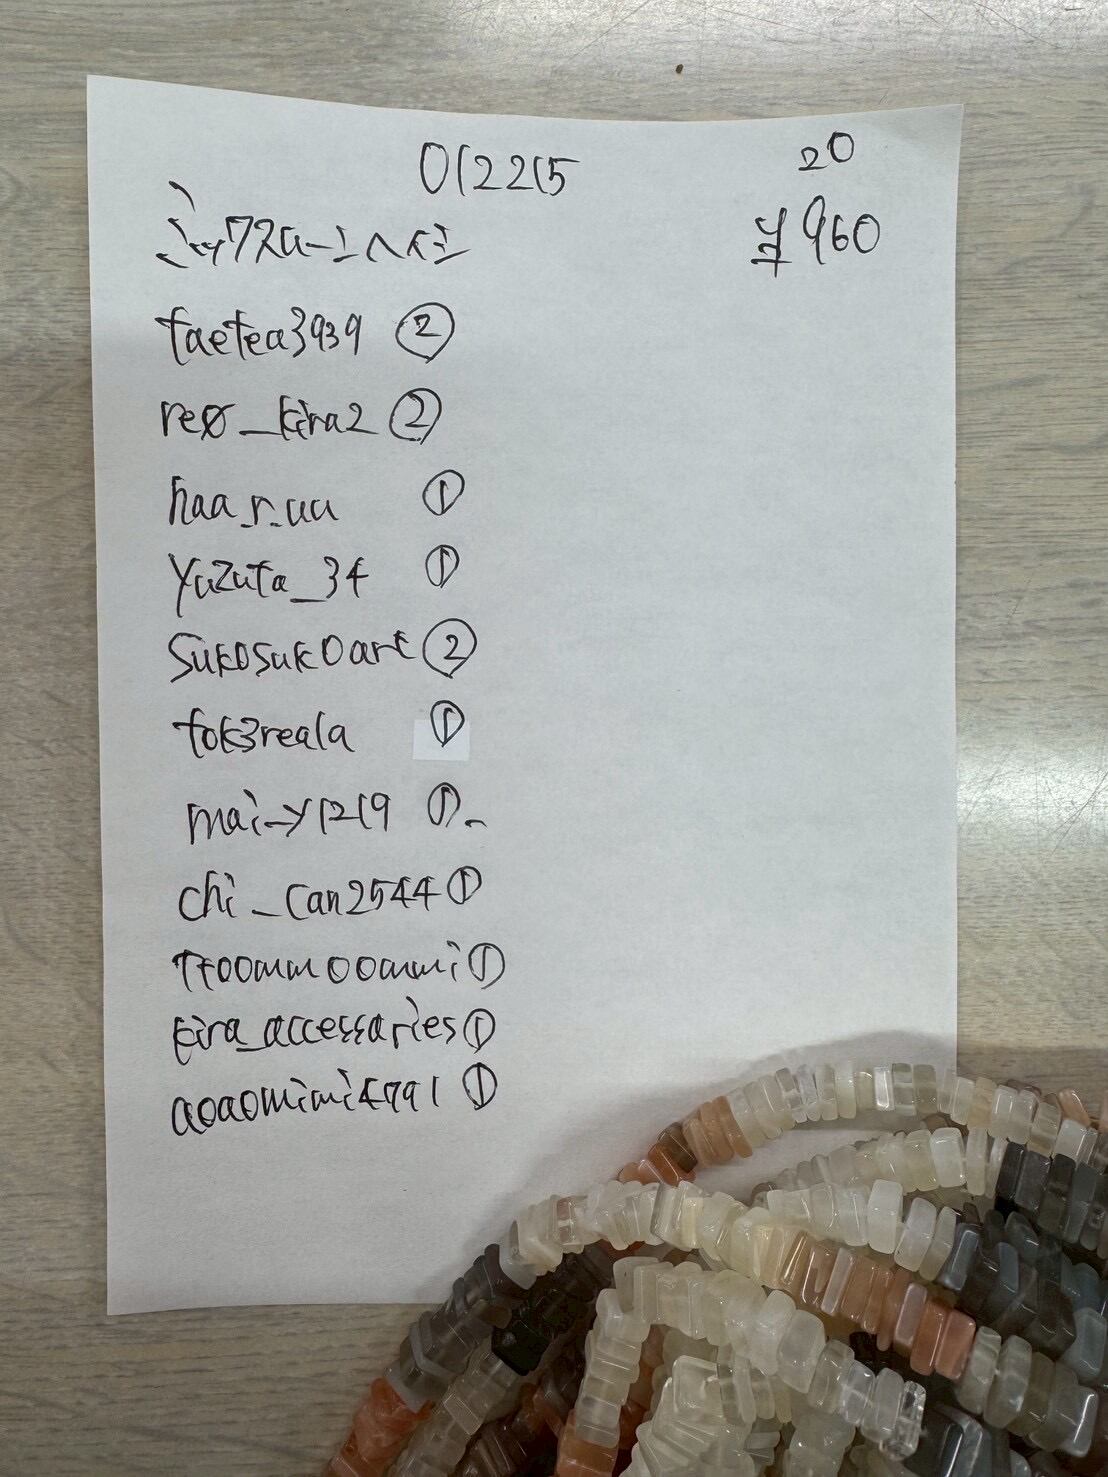 012215
20
ミックスムーンヘイシ
¥960
taetea3939 ②
re0_kira2 ②
haa_r_uu ①
yuzuta_34 ①
sukosuk0art ②
tok3reala ①
mai_y1219 ①
chi_can2544 ①
ttoommoommi ①
kira_accessaries ①
aoaomimi4791 ①